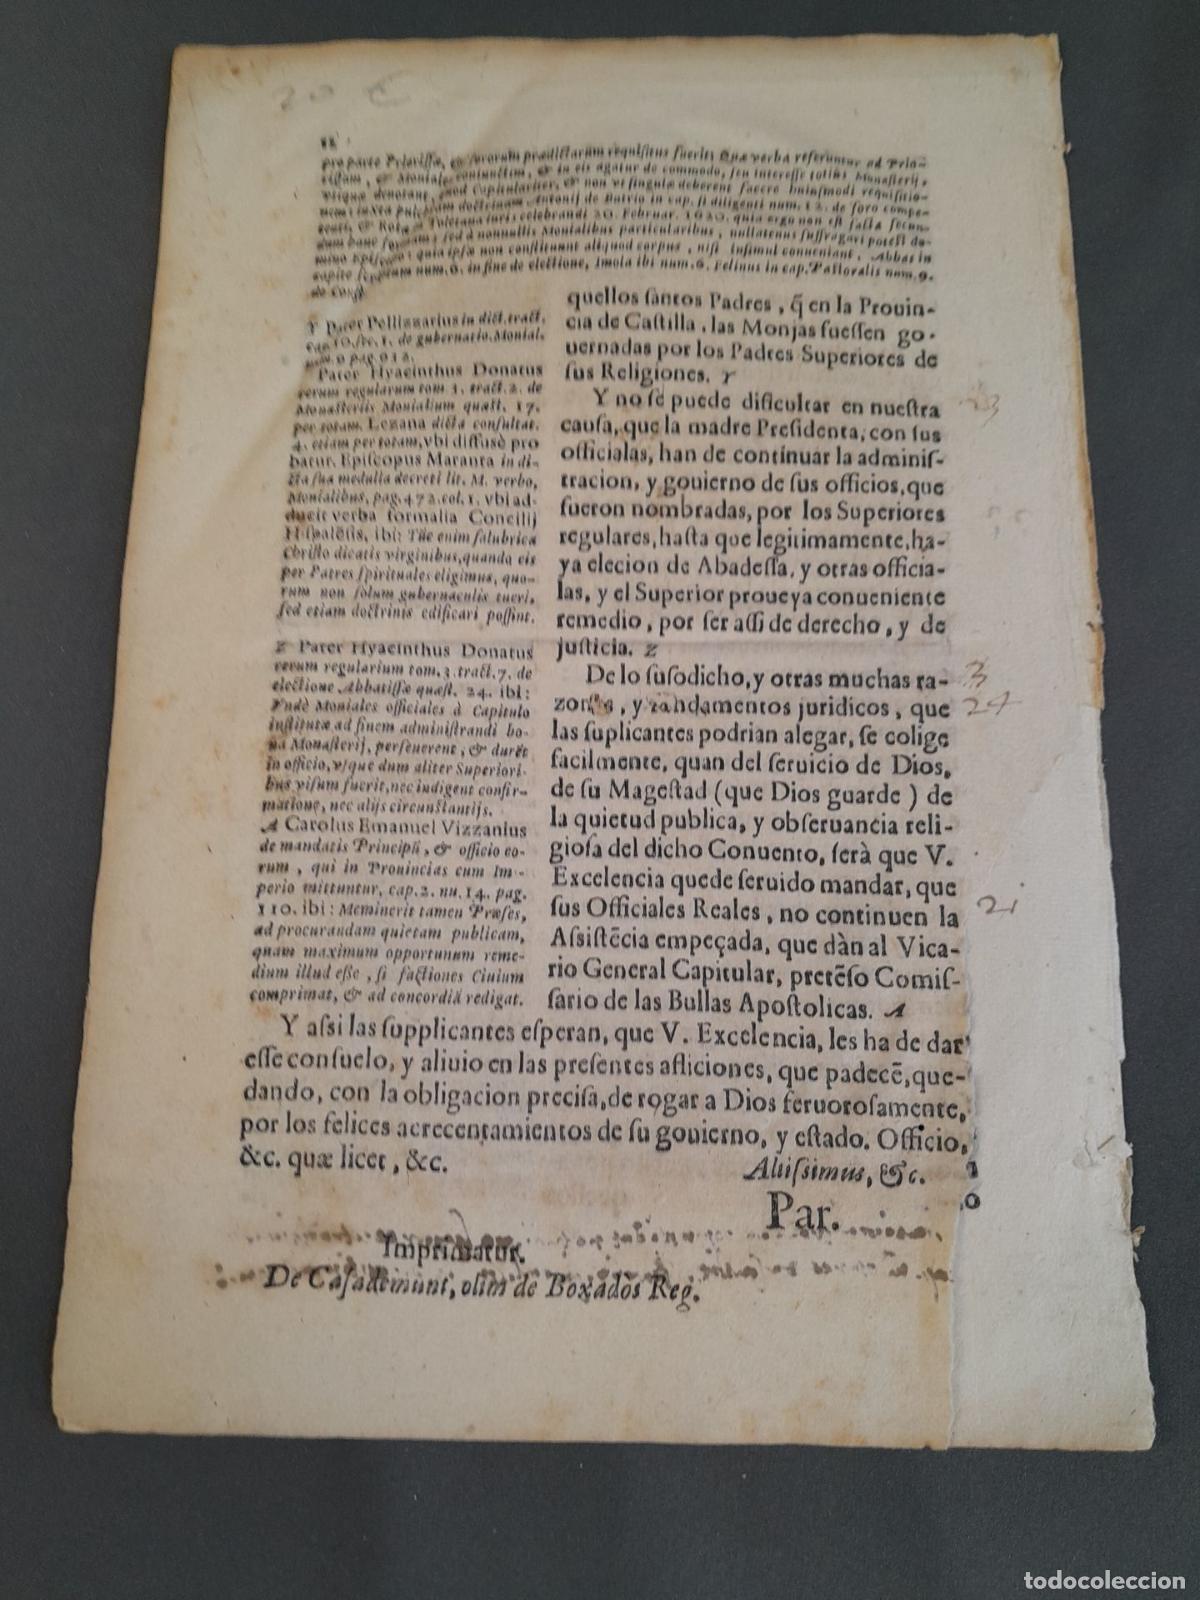 20 €
12
pro parte Priorissæ, & sororum prædictarum requisitus fuerit; Quæ verba referuntur ad Prio-
rissam, & Moniales coniunctim, & in eis agatur de commodo, seu interesse totius Monasterij,
vtique denotant, quod Capitulariter, & non vt singulæ deberent facere huiusmodi requisitio-
nem; iuxta doctrinam Antonij de Butrio in cap. si diligenti num. 12. de foro compe-
tenti, & Rota Toletana iuris celebrandi 20. Februar. 1620. quia ergo non est facta secun-
dum hanc formam; sed à nonnullis Monialibus particularibus, nullatenus suffragari potest do-
mino Episcopo; quia ipsæ non constituunt aliquod corpus, nisi insimul conueniant, Abbas in
capite num. 6. in fine de electione, Imola ibi num. 6. Felinus in cap. Pastoralis num. 9.
de Const.
Y Pater Pellizzarius in dict. tract.
cap. 10. sec. 1. de gubernatio. Monial.
num. 9 pag. 912.
Pater Hyacinthus Donatus
rerum regularium tom. 3. tract. 2. de
Monasterijs Monialium quæst. 17.
per totam. Lezana dicta consultat.
4. etiam per totam, vbi diffusè pro
batur. Episcopus Maranta in di-
cta sua medulla decreti lit. M. verbo,
Monialibus, pag. 472. col. 1. vbi ad-
ducit verba formalia Concilij
Hispalẽsis, ibi: Tũc enim salubrica
Christo dicatis virginibus, quando eis
per Patres spirituales eligimus, quo-
rum non solum gubernaculis tueri,
sed etiam doctrinis edificari possint.
Z Pater Hyacinthus Donatus
rerum regularium tom. 3. tract. 7. de
electione Abbatissæ quæst. 24. ibi:
Vndè Moniales officiales à Capitulo
institutæ ad finem administrandi bo-
na Monasterij, perseuerent, & durẽt
in officio, vsque dum aliter Superiori-
bus visum fuerit, nec indigent confir-
matione, nec alijs circunstantijs.
A Carolus Emanuel Vizzanius
de mandatis Principũ, & officio eo-
rum, qui in Prouincias cum Im-
perio mittuntur, cap. 2. nu. 14. pag.
110. ibi: Meminerit tamen Præses,
ad procurandam quietam publicam,
quam maximum opportunum reme-
dium illud esse, si factiones Ciuium
comprimat, & ad concordiã redigat.
quellos santos Padres, q̃ en la Prouin-
cia de Castilla, las Monjas fuessen go-
uernadas por los Padres Superiores de
sus Religiones. Y
Y no se puede dificultar en nuestra
causa, que la madre Presidenta, con sus
officialas, han de continuar la adminis-
tracion, y gouierno de sus officios, que
fueron nombradas, por los Superiores
regulares, hasta que legitimamente, ha-
ya elecion de Abadessa, y otras officia-
las, y el Superior proueya conueniente
remedio, por ser assi de derecho, y de
justicia. Z
De lo susodicho, y otras muchas ra-
zones, y fundamentos juridicos, que
las suplicantes podrian alegar, se colige
facilmente, quan del seruicio de Dios,
de su Magestad (que Dios guarde) de
la quietud publica, y obseruancia reli-
giosa del dicho Conuento, serà que V.
Excelencia quede seruido mandar, que
sus Officiales Reales, no continuen la
Assistẽcia empeçada, que dàn al Vica-
rio General Capitular, pretẽso Comis-
sario de las Bullas Apostolicas. A
23
3
24
21
Y assi las supplicantes esperan, que V. Excelencia, les ha de dar
esse consuelo, y aliuio en las presentes afliciones, que padecẽ, que-
dando, con la obligacion precisa, de rogar a Dios feruorosamente,
por los felices acrecentamientos de su gouierno, y estado. Officio,
&c. quæ licet, &c.
Altissimus, &c.
Par.
Imprimatur.
De Casademunt, olim de Boxadòs Reg.
todocoleccion